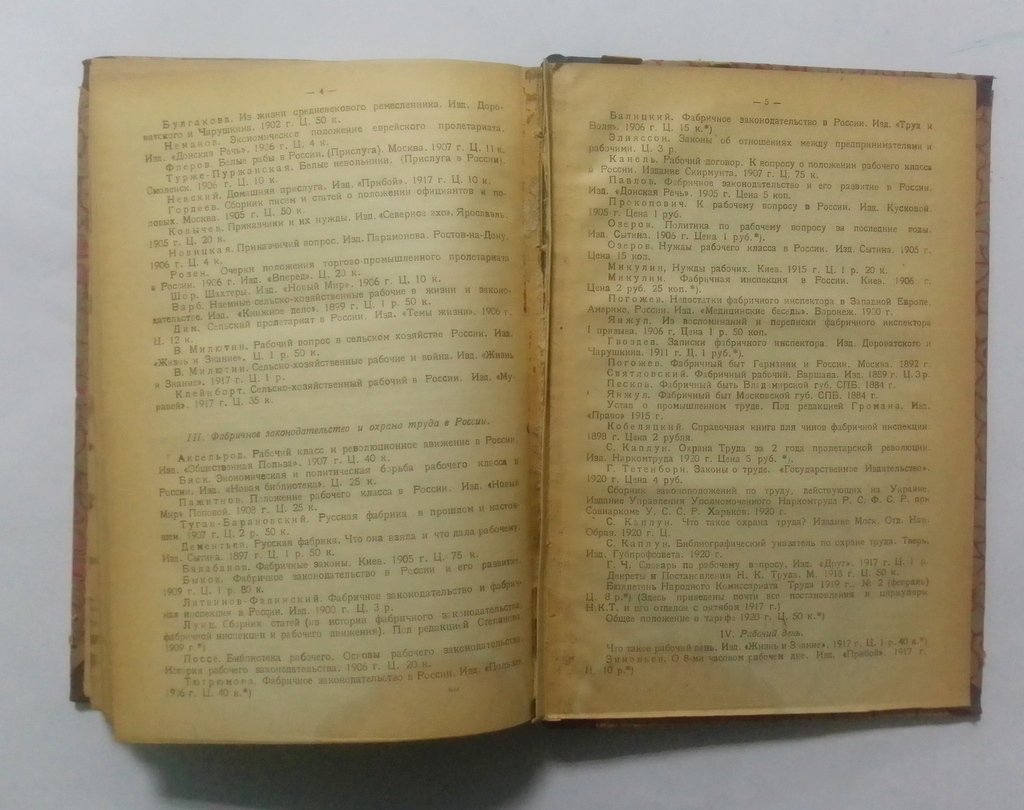 — 4 —
Булгакова. Из жизни средневекового ремесленника. Изд. Доро-
ватского и Чарушкина. 1902 г. Ц. 50 к.
Неманов. Экономическое положение еврейского пролетариата.
Изд. «Донская Речь». 1906 г. Ц. 4 к.
Флеров. Белые рабы в России. (Прислуга). Москва. 1907 г. Ц. 11 к.
Турже-Пуржанская. Белые невольники. (Прислуга в России).
Смоленск. 1906 г. Ц. 10 к.
Невский. Домашняя прислуга. Изд. «Прибой». 1917 г. Ц. 10 к.
Гордеев. Сборник писем и статей о положении официантов и по-
ловых. Москва. 1905 г. Ц. 50 к.
Ковычев. Приказчики и их нужды. Изд. «Северное эхо». Ярославль.
1905 г. Ц. 20 к.
Новицкая. Приказчичий вопрос. Изд. Парамонова. Ростов-на-Дону.
1906 г. Ц. 4 к.
Розен. Очерки положения торгово-промышленного пролетариата
в России. 1906 г. Изд. «Вперед». Ц. 20 к.
Шор. Шахтеры. Изд. «Новый Мир». 1906 г. Ц. 10 к.
Варб. Наемные сельско-хозяйственные рабочие в жизни и законо-
дательстве. Изд. «Книжное дело». 1899 г. Ц. 1 р. 50 к.
Дин. Сельский пролетариат в России. Изд. «Темы жизни». 1906 г.
Ц. 12 к.
В. Милютин. Рабочий вопрос в сельском хозяйстве России. Изд.
«Жизнь и Знание». Ц. 1 р. 50 к.
В. Милютин. Сельско-хозяйственные рабочие и война. Изд. «Жизнь
и Знание». 1917 г. Ц. 1 р.
Клейнборт. Сельско-хозяйственный рабочий в России. Изд. «Му-
равей». 1917 г. Ц. 35 к.
III. Фабричное законодательство и охрана труда в России.
Аксельрод. Рабочий класс и революционное движение в России.
Изд. «Общественная Польза». 1907 г. Ц. 40 к.
Биск. Экономическая и политическая борьба рабочего класса в
России. Изд. «Новая библиотека». Ц. 25 к.
Пажитнов. Положение рабочего класса в России. Изд. «Новый
Мир» Поповой. 1908 г. Ц. 25 к.
Туган-Барановский. Русская фабрика в прошлом и настоя-
шем. 1907 г. Ц. 2 р. 50 к.
Дементьев. Русская фабрика. Что она взяла и что дала рабочему.
Изд. Сытина. 1897 г. Ц. 1 р. 50 к.
Балабанов. Фабричные законы. Киев. 1905 г. Ц. 75 к.
Быков. Фабричное законодательство в России и его развитие.
1909 г. Ц. 1 р. 80 к.
Литвинов-Фалинский. Фабричное законодательство и фабрич-
ная инспекция в России. Изд. 1900 г. Ц. 3 р.
Лунц. Сборник статей (из истории фабричного законодательства,
фабричной инспекции и рабочего движения). Под редакцией Степанова
1909 г.*)
Поссе. Библиотека рабочего. Основы рабочего законодательства.
История рабочего законодательства. 1906 г. Ц. 20 к.
Тютрюмова. Фабричное законодательство в России. Изд. «Польза»
1906 г. Ц. 40 к.*)
— 5 —
Балицкий. Фабричное законодательство в России. Изд. «Труд и
Воля». 1906 г. Ц. 15 к.*)
Элияссон. Законы об отношениях между предпринимателями и
рабочими. Ц. 3 р.
Канель. Рабочий договор. К вопросу о положении рабочего класса
в России. Издание Скирмунта. 1907 г. Ц. 75 к.
Павлов. Фабричное законодательство и его развитие в России.
Изд. «Донская Речь». 1905 г. Цена 5 коп.
Прокопович. К рабочему вопросу в России. Изд. Кусковой.
1905 г. Цена 1 руб.
Озеров. Политика по рабочему вопросу за последние годы.
Изд. Сытина. 1906 г. Цена 1 руб.*).
Озеров. Нужды рабочего класса в России. Изд. Сытина. 1905 г.
Цена 15 коп.
Микулин, Нужды рабочих. Киев. 1915 г. Ц. 1 р. 20 к.
Микулин. Фабричная инспекция в России. Киев. 1906 г.
Цена 2 руб. 25 коп.*).
Погожев. Недостатки фабричного инспектора в Западной Европе.
Америке, России. Изд. «Медицинские беседы». Воронеж. 1900 г.
Янжул. Из воспоминаний и переписки фабричного инспектора
I призыва. 1906 г. Цена 1 р. 50 коп.
Гвоздев. Записки фабричного инспектора. Изд. Дороватского и
Чарушкина. 1911 г. Ц. 1 руб.*).
Погожев. Фабричный быт Германии и России. Москва. 1892 г.
Святловский. Фабричный рабочий. Варшава. Изд. 1889 г. Ц. 3 р.
Песков. Фабричный быть Владимирской губ. СПБ. 1884 г.
Янжул. Фабричный быт Московской губ. СПБ. 1884 г.
Устав о промышленном труде. Под редакцией Громана. Изд.
«Право» 1915 г.
Кобеляцкий. Справочная книга для чинов фабричной инспекции
1898 г. Цена 2 рубля.
С. Каплун. Охрана Труда за 2 года пролетарской революции.
Изд. Наркомтруда 1920 г. Цена 5 руб. *).
Г. Тетенборн. Законы о труде. «Государственное Издательство».
1920 г. Цена 4 руб.
Сборник законоположений по труду, действующих на Украине.
Издание Управления Уполномоченного Наркомтруда Р. С. Ф. С. Р. при
Совнаркоме У. С. С. Р. Харьков. 1920 г.
С. Каплун. Что такое охрана труда? Издание Моск. Отд. Нар.
Образ. 1920 г. Ц.
С. Каплун. Библиографический указатель по охране труда. Тверь.
Изд. Губпрофсовета. 1920 г.
Г. Ч. Словарь по рабочему вопросу. Изд. «Друг». 1917 г. Ц. 1 р.
Декреты и Постановления Н. К. Труда. М. 1918 г. Ц. 50 к.
Бюллетень Народного Комиссариата Труда 1919 г. № 2 (февраль)
Ц. 8 р.*) (Здесь приведены почти все постановления и циркуляры
Н.К.Т. и его отделов с октября 1917 г.)
Общее положение о тарифе 1920 г. Ц. 50 к.*)
IV. Рабочий день.
Что такое рабочий день. Изд. «Жизнь и Знание». 1917 г. Ц. 1 р. 40 к.*)
Зиновьев. О 8-ми часовом рабочем дне. Изд. «Прибой». 1917 г.
Ц. 10 р.*)